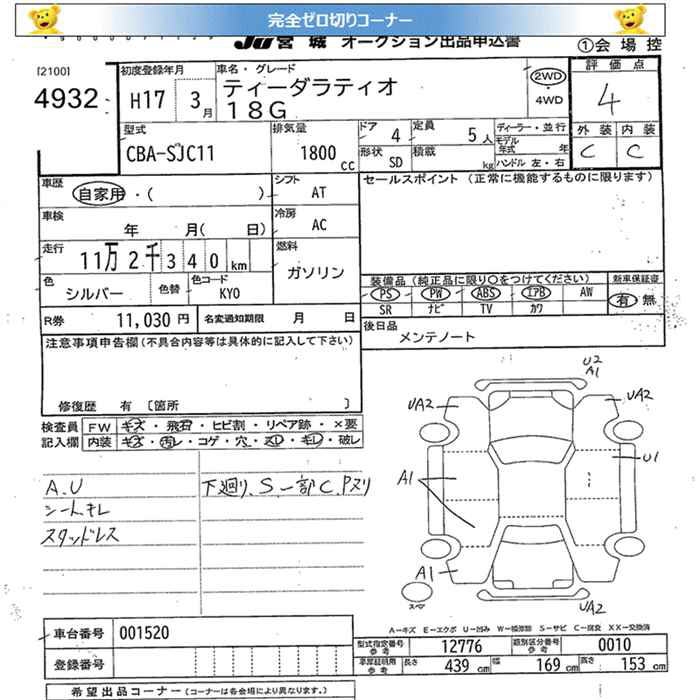 完全ゼロ切りコーナー
JU宮城 オークション出品申込書 ①会場控
[2100]
4932
初度登録年月 H17 3月
車名・グレード ティーダラティオ
18G
2WD
・4WD
評価点 4
外装 内装
C C
型式 CBA-SJC11
排気量 1800cc
ドア 4 定員 5人
形状 SD 積載 kg
ディーラー・並行
モデル年式 年
ハンドル 左・右
車歴 自家用・( )
シフト AT
車検 年 月( 日)
冷房 AC
走行 11万2千340km
燃料 ガソリン
色 シルバー 色替 色コード KY0
R券 11,030円 名変通知期限 月 日
セールスポイント (正常に機能するものに限ります)
装備品 (純正品に限り○をつけてください) 新車保証書
PS PW ABS エアB AW 有・無
SR ナビ TV カワ
後日品
メンテノート
注意事項申告欄(不具合内容等は具体的に記入して下さい)
修復歴 有 〔箇所 〕
検査員 FW キズ・飛石・ヒビ割・リペア跡・×要
記入欄 内装 キズ・汚レ・コゲ・穴・スレ・キレ・破レ
A.U
シートキレ
スタッドレス
下廻り、S一部C、Pヌリ
U2
A1
UA2
UA2
U1
A1
A1
UA2
スペア
A-キズ E-エクボ U-凹み W-補修跡 S-サビ C-腐食 XX-交換済
車台番号 001520
登録番号
型式指定番号 参考 12776 類別区分番号 参考 0010
車庫証明用 参考 長さ 439cm 幅 169cm 高さ 153cm
希望出品コーナー(コーナーは各会場により異なります。)